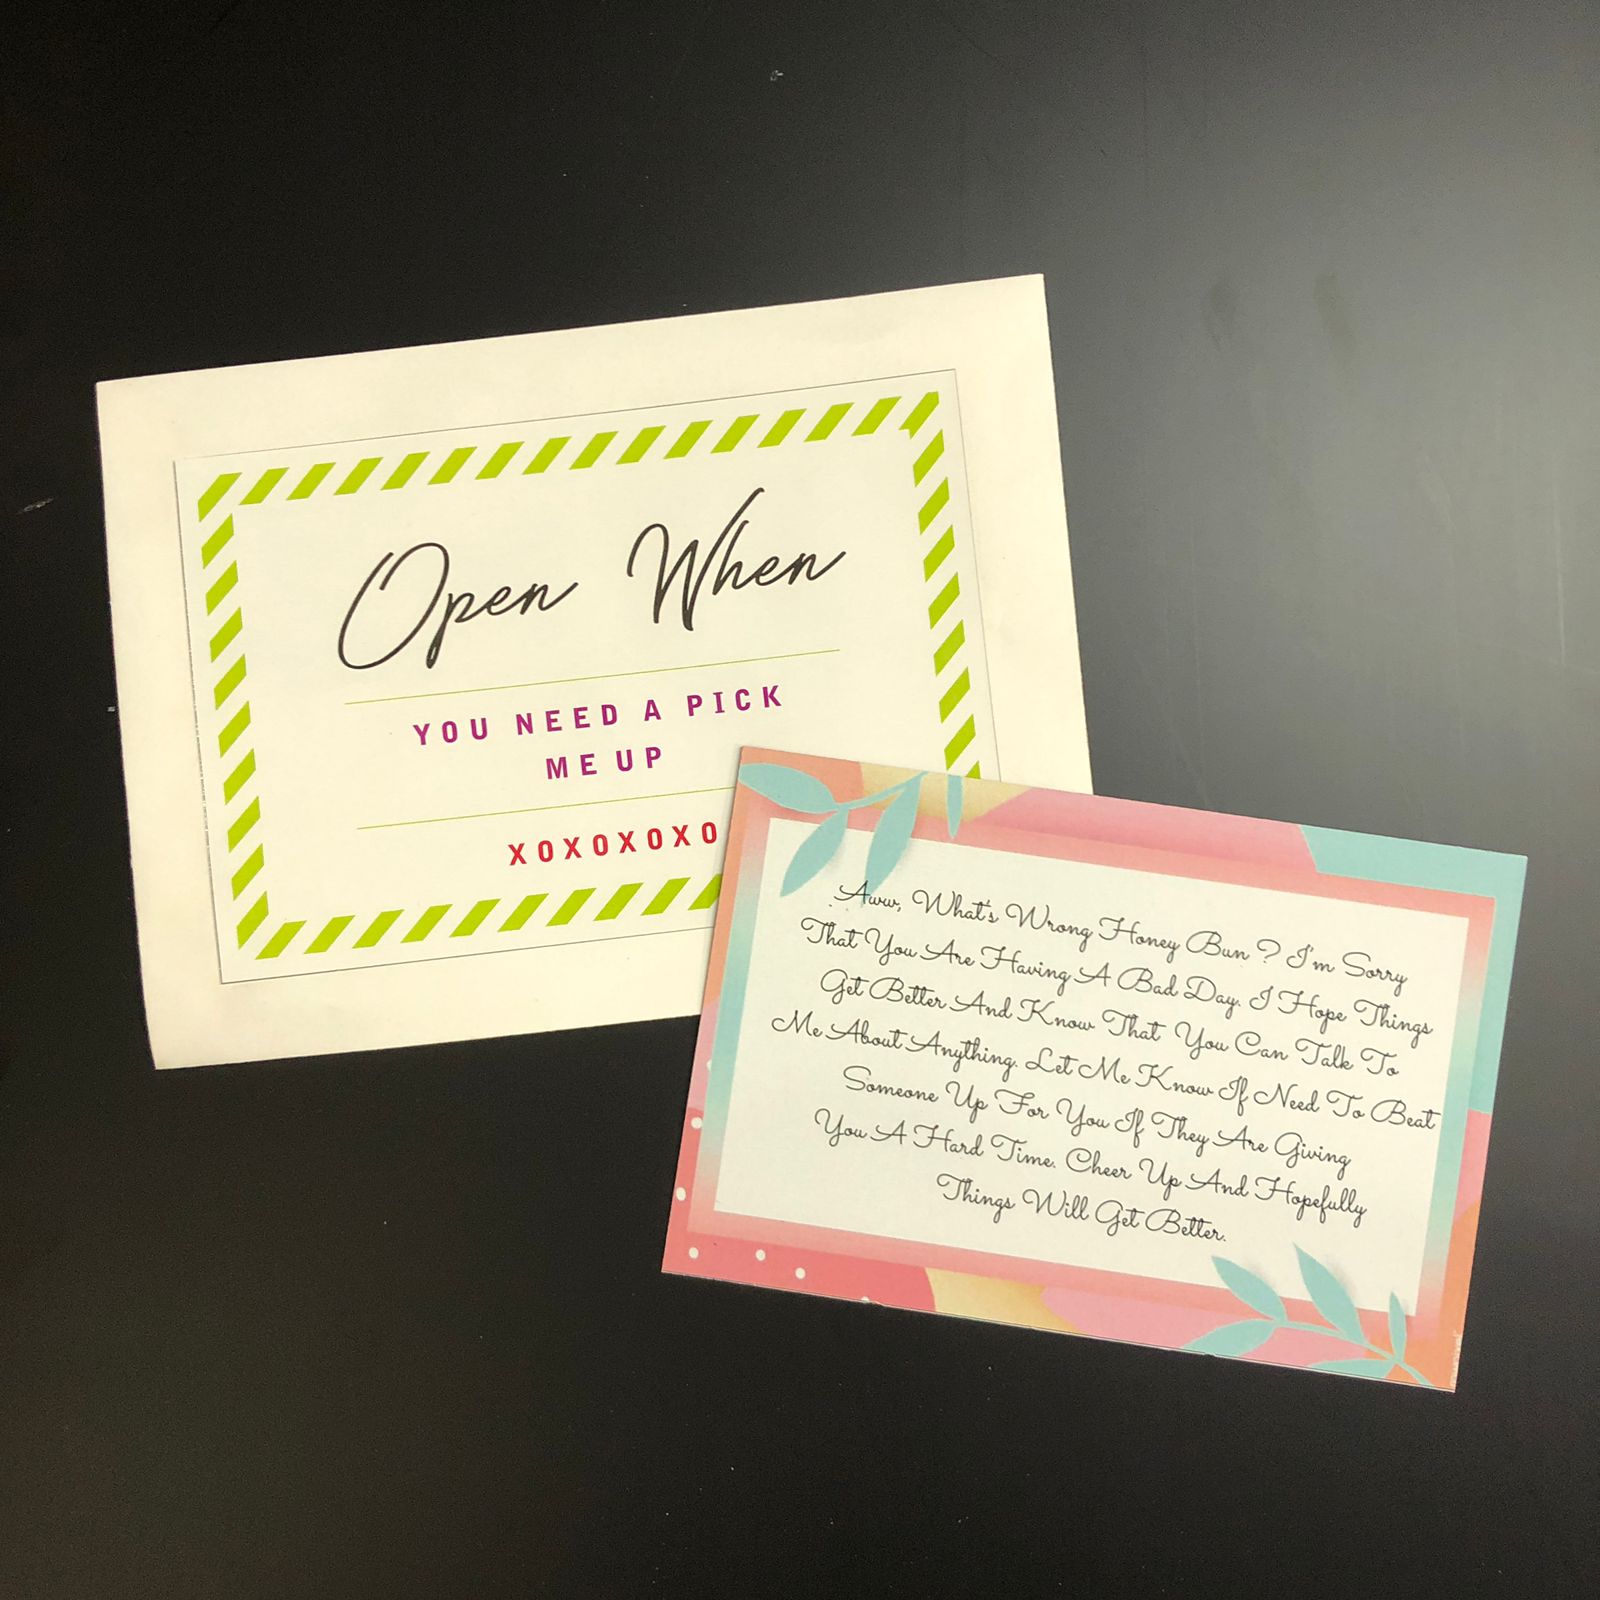 Open When
YOU NEED A PICK
ME UP
XOXOXOXO
Aww, What's Wrong Honey Bun ? I'm Sorry
That You Are Having A Bad Day. I Hope Things
Get Better And Know That You Can Talk To
Me About Anything. Let Me Know If Need To Beat
Someone Up For You If They Are Giving
You A Hard Time. Cheer Up And Hopefully
Things Will Get Better.